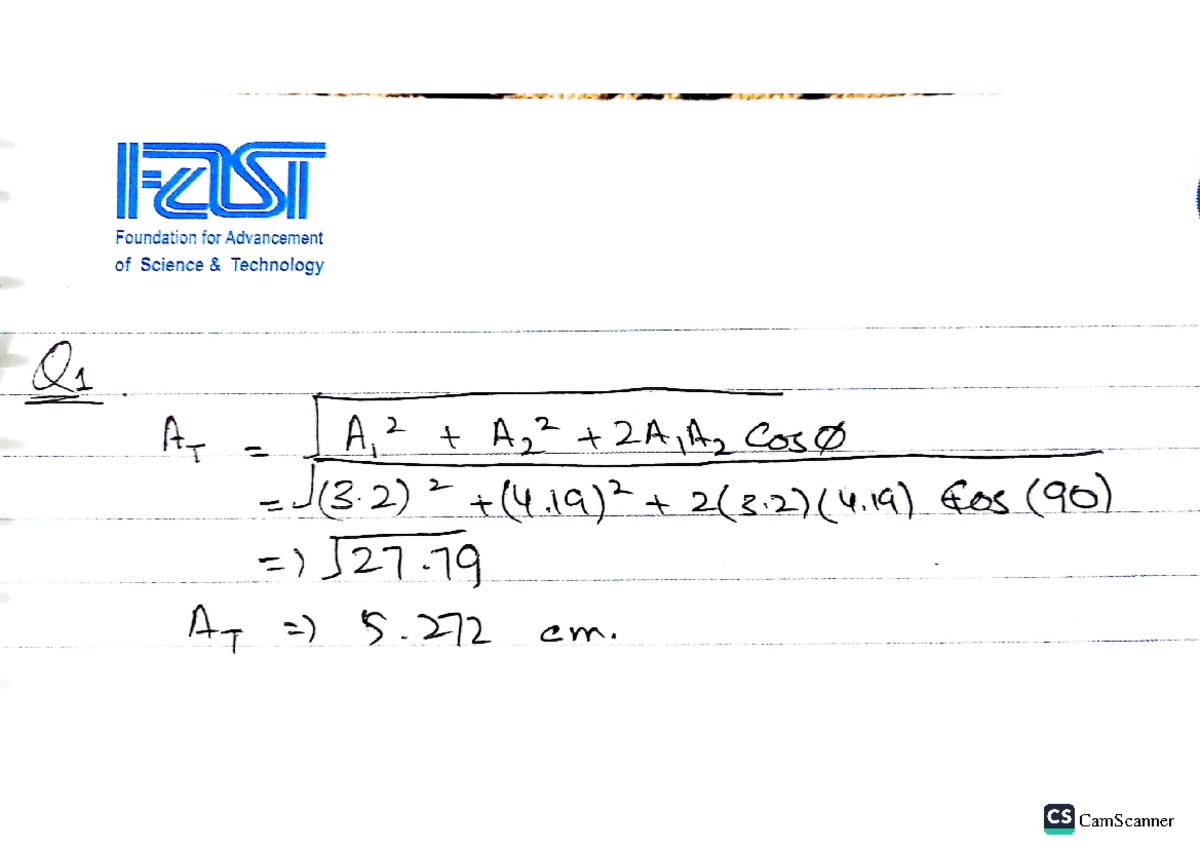 FAST
Foundation for Advancement
of Science & Technology
Q1
A_T = √(A₁² + A₂² + 2A₁A₂ Cosø)
= √((3.2)² + (4.19)² + 2(3.2)(4.19) Cos (90))
=) √27.79
A_T =) 5.272 cm.
CS CamScanner